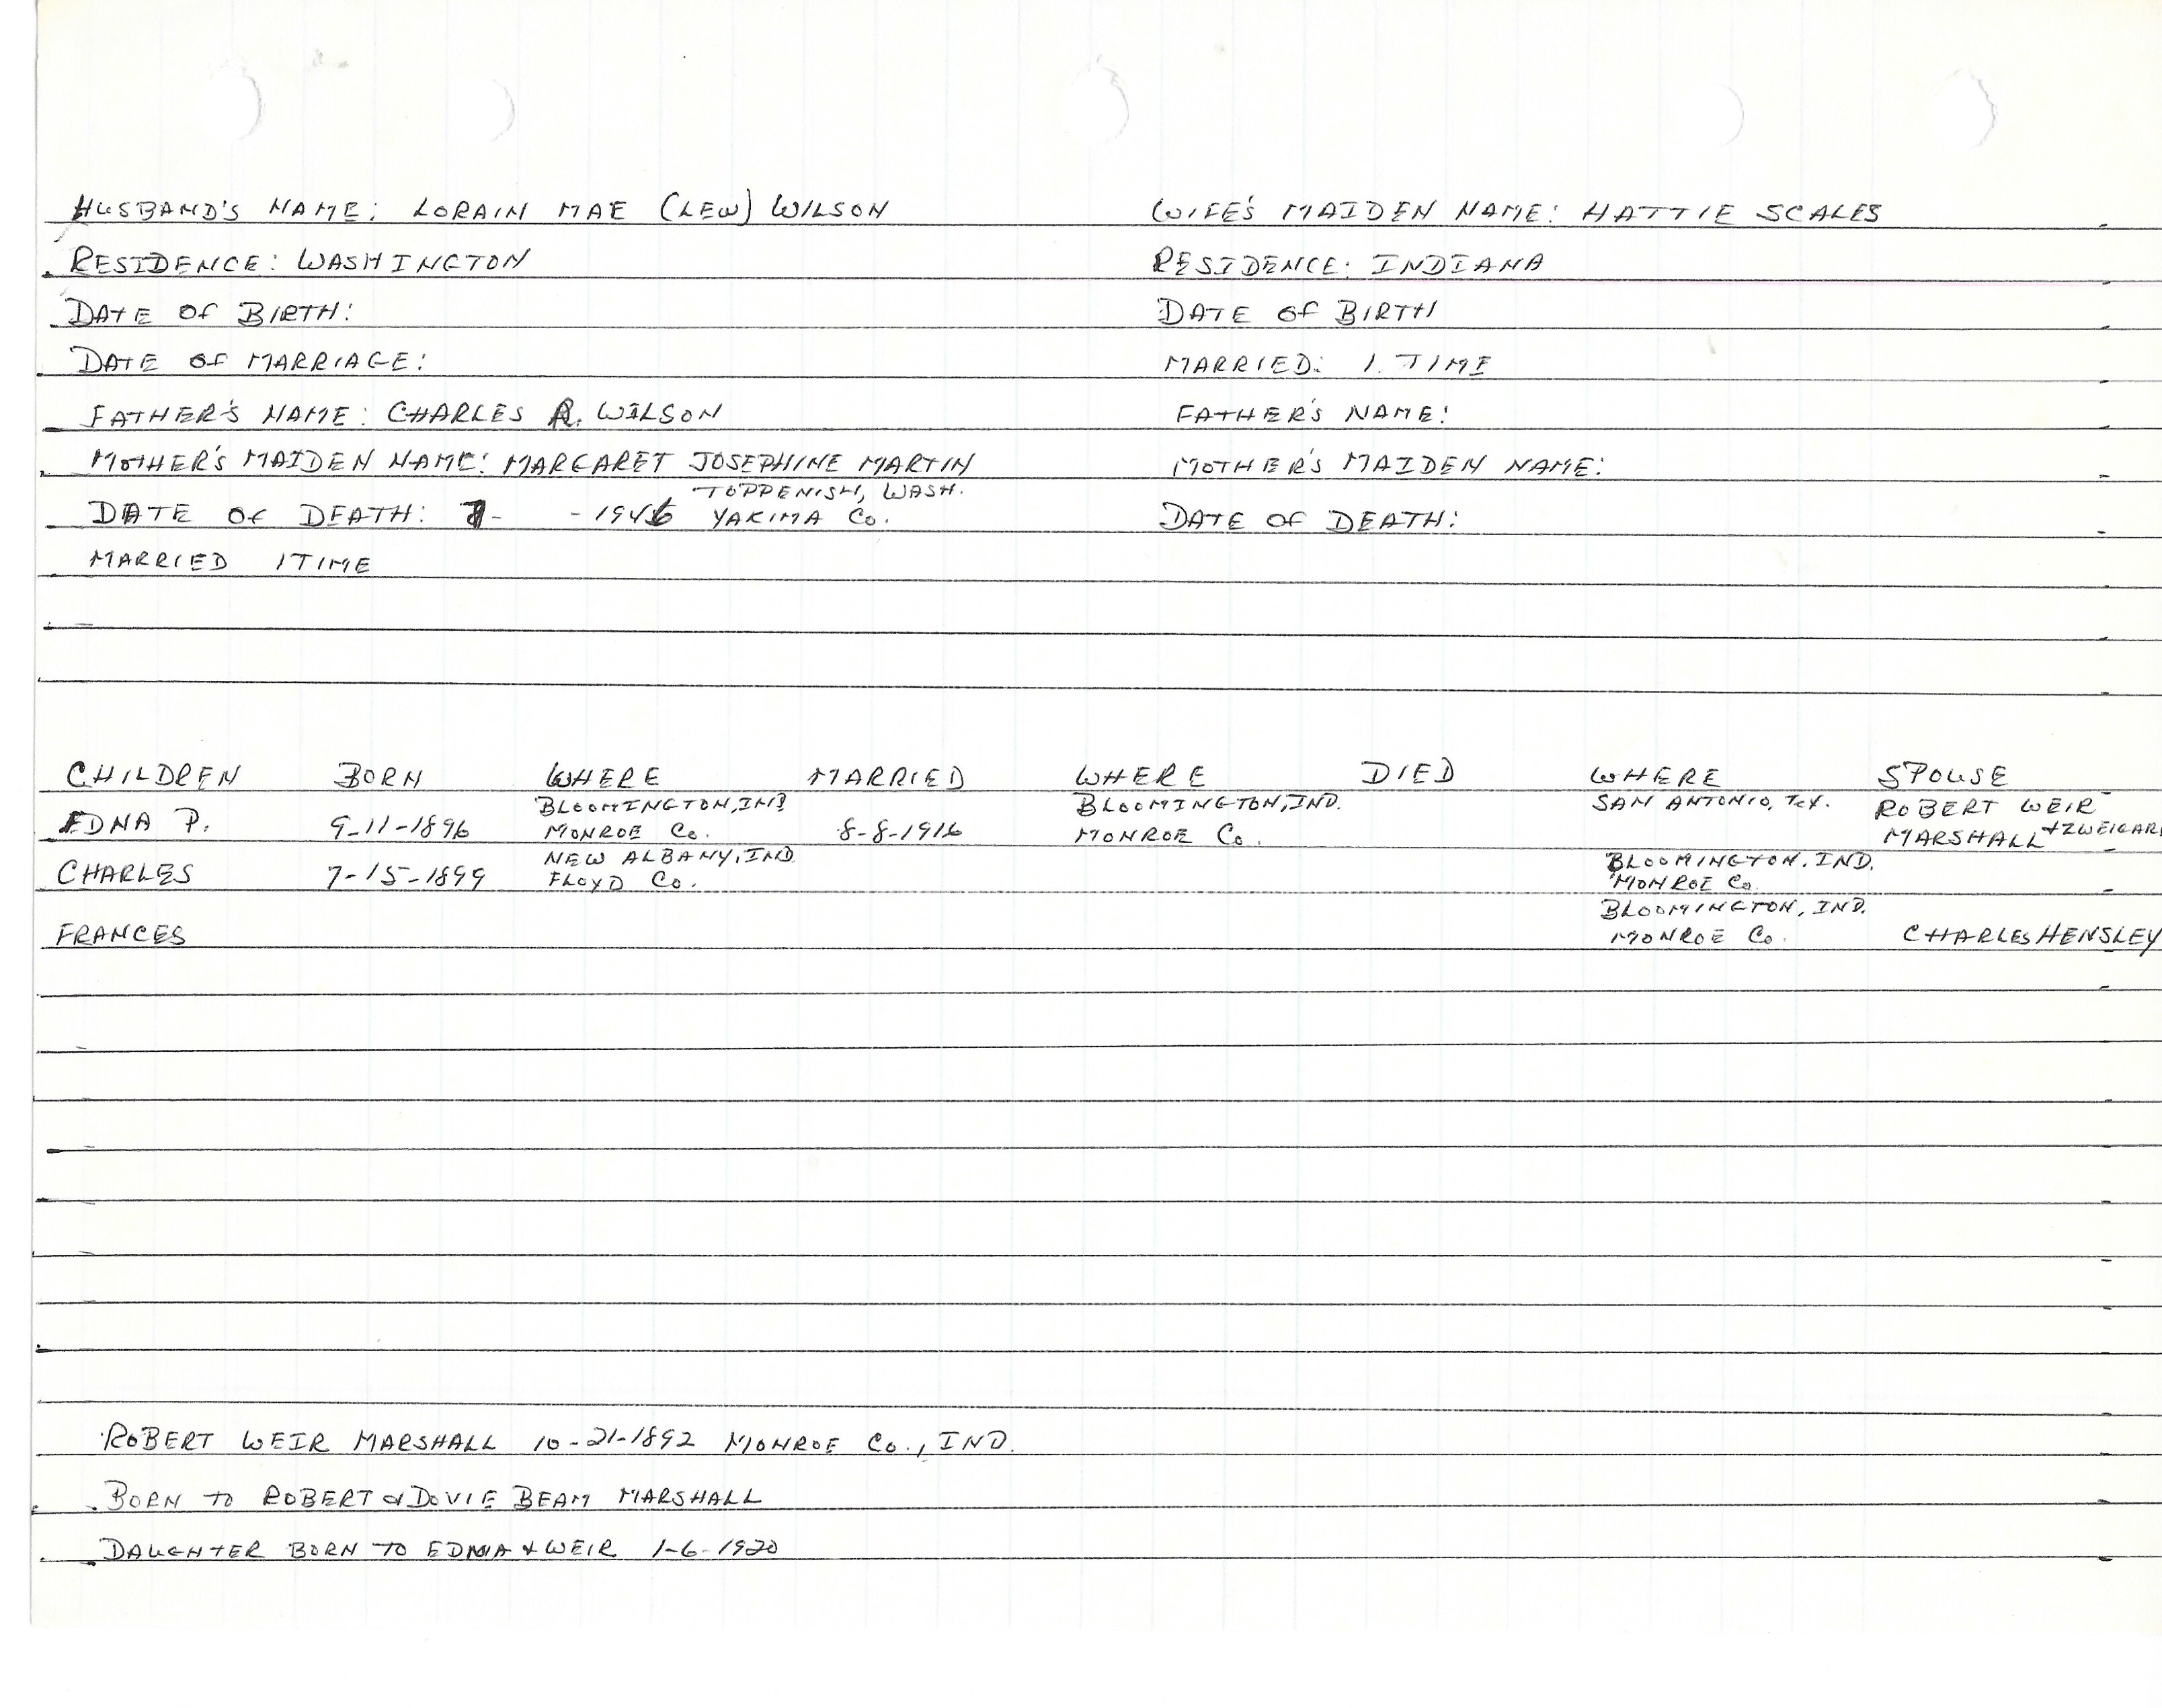 HUSBAND'S NAME: LORAIN MAE (LEW) WILSON WIFE'S MAIDEN NAME: HATTIE SCALES
RESIDENCE: WASHINGTON RESIDENCE: INDIANA
DATE OF BIRTH: DATE OF BIRTH
DATE OF MARRIAGE: MARRIED: 1. TIME
FATHER'S NAME: CHARLES R. WILSON FATHER'S NAME:
MOTHER'S MAIDEN NAME: MARGARET JOSEPHINE MARTIN MOTHER'S MAIDEN NAME:
TOPPENISH, WASH.
DATE OF DEATH: 7- -1946 YAKIMA Co. DATE OF DEATH:
MARRIED 1 TIME
CHILDREN BORN WHERE MARRIED WHERE DIED WHERE SPOUSE
BLOOMINGTON, IND BLOOMINGTON, IND. SAN ANTONIO, TEX. ROBERT WEIR
EDNA P. 9-11-1896 MONROE Co. 8-8-1916 MONROE Co. MARSHALL
NEW ALBANY, IND BLOOMINGTON, IND.
CHARLES 7-15-1899 FLOYD Co. MONROE Co
BLOOMINGTON, IND.
FRANCES MONROE Co. CHARLES HENSLEY
ROBERT WEIR MARSHALL 10-21-1892 MONROE Co., IND.
BORN TO ROBERT & DOVIE BEAM MARSHALL
DAUGHTER BORN TO EDNA & WEIR 1-6-1920